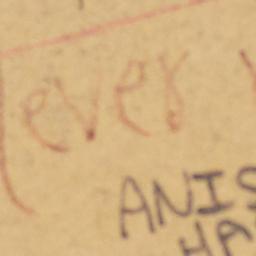 ever
ANIS
HA